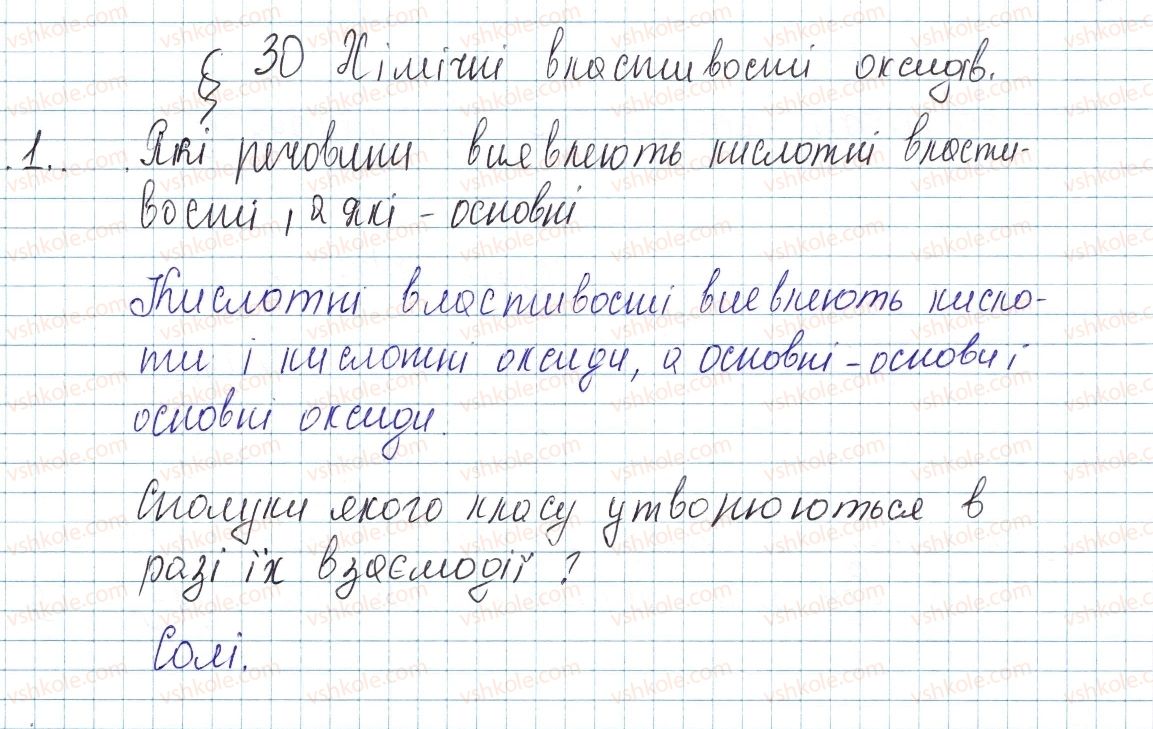 § 30 Хімічні властивості оксидів.
.1.. Які речовини виявляють кислотні власти-
вості, а які - основні
Кислотні властивості виявляють кисло-
ти і кислотні оксиди, а основні - основи і
основні оксиди.
Сполуки якого класу утворюються в
разі їх взаємодії?
Солі.